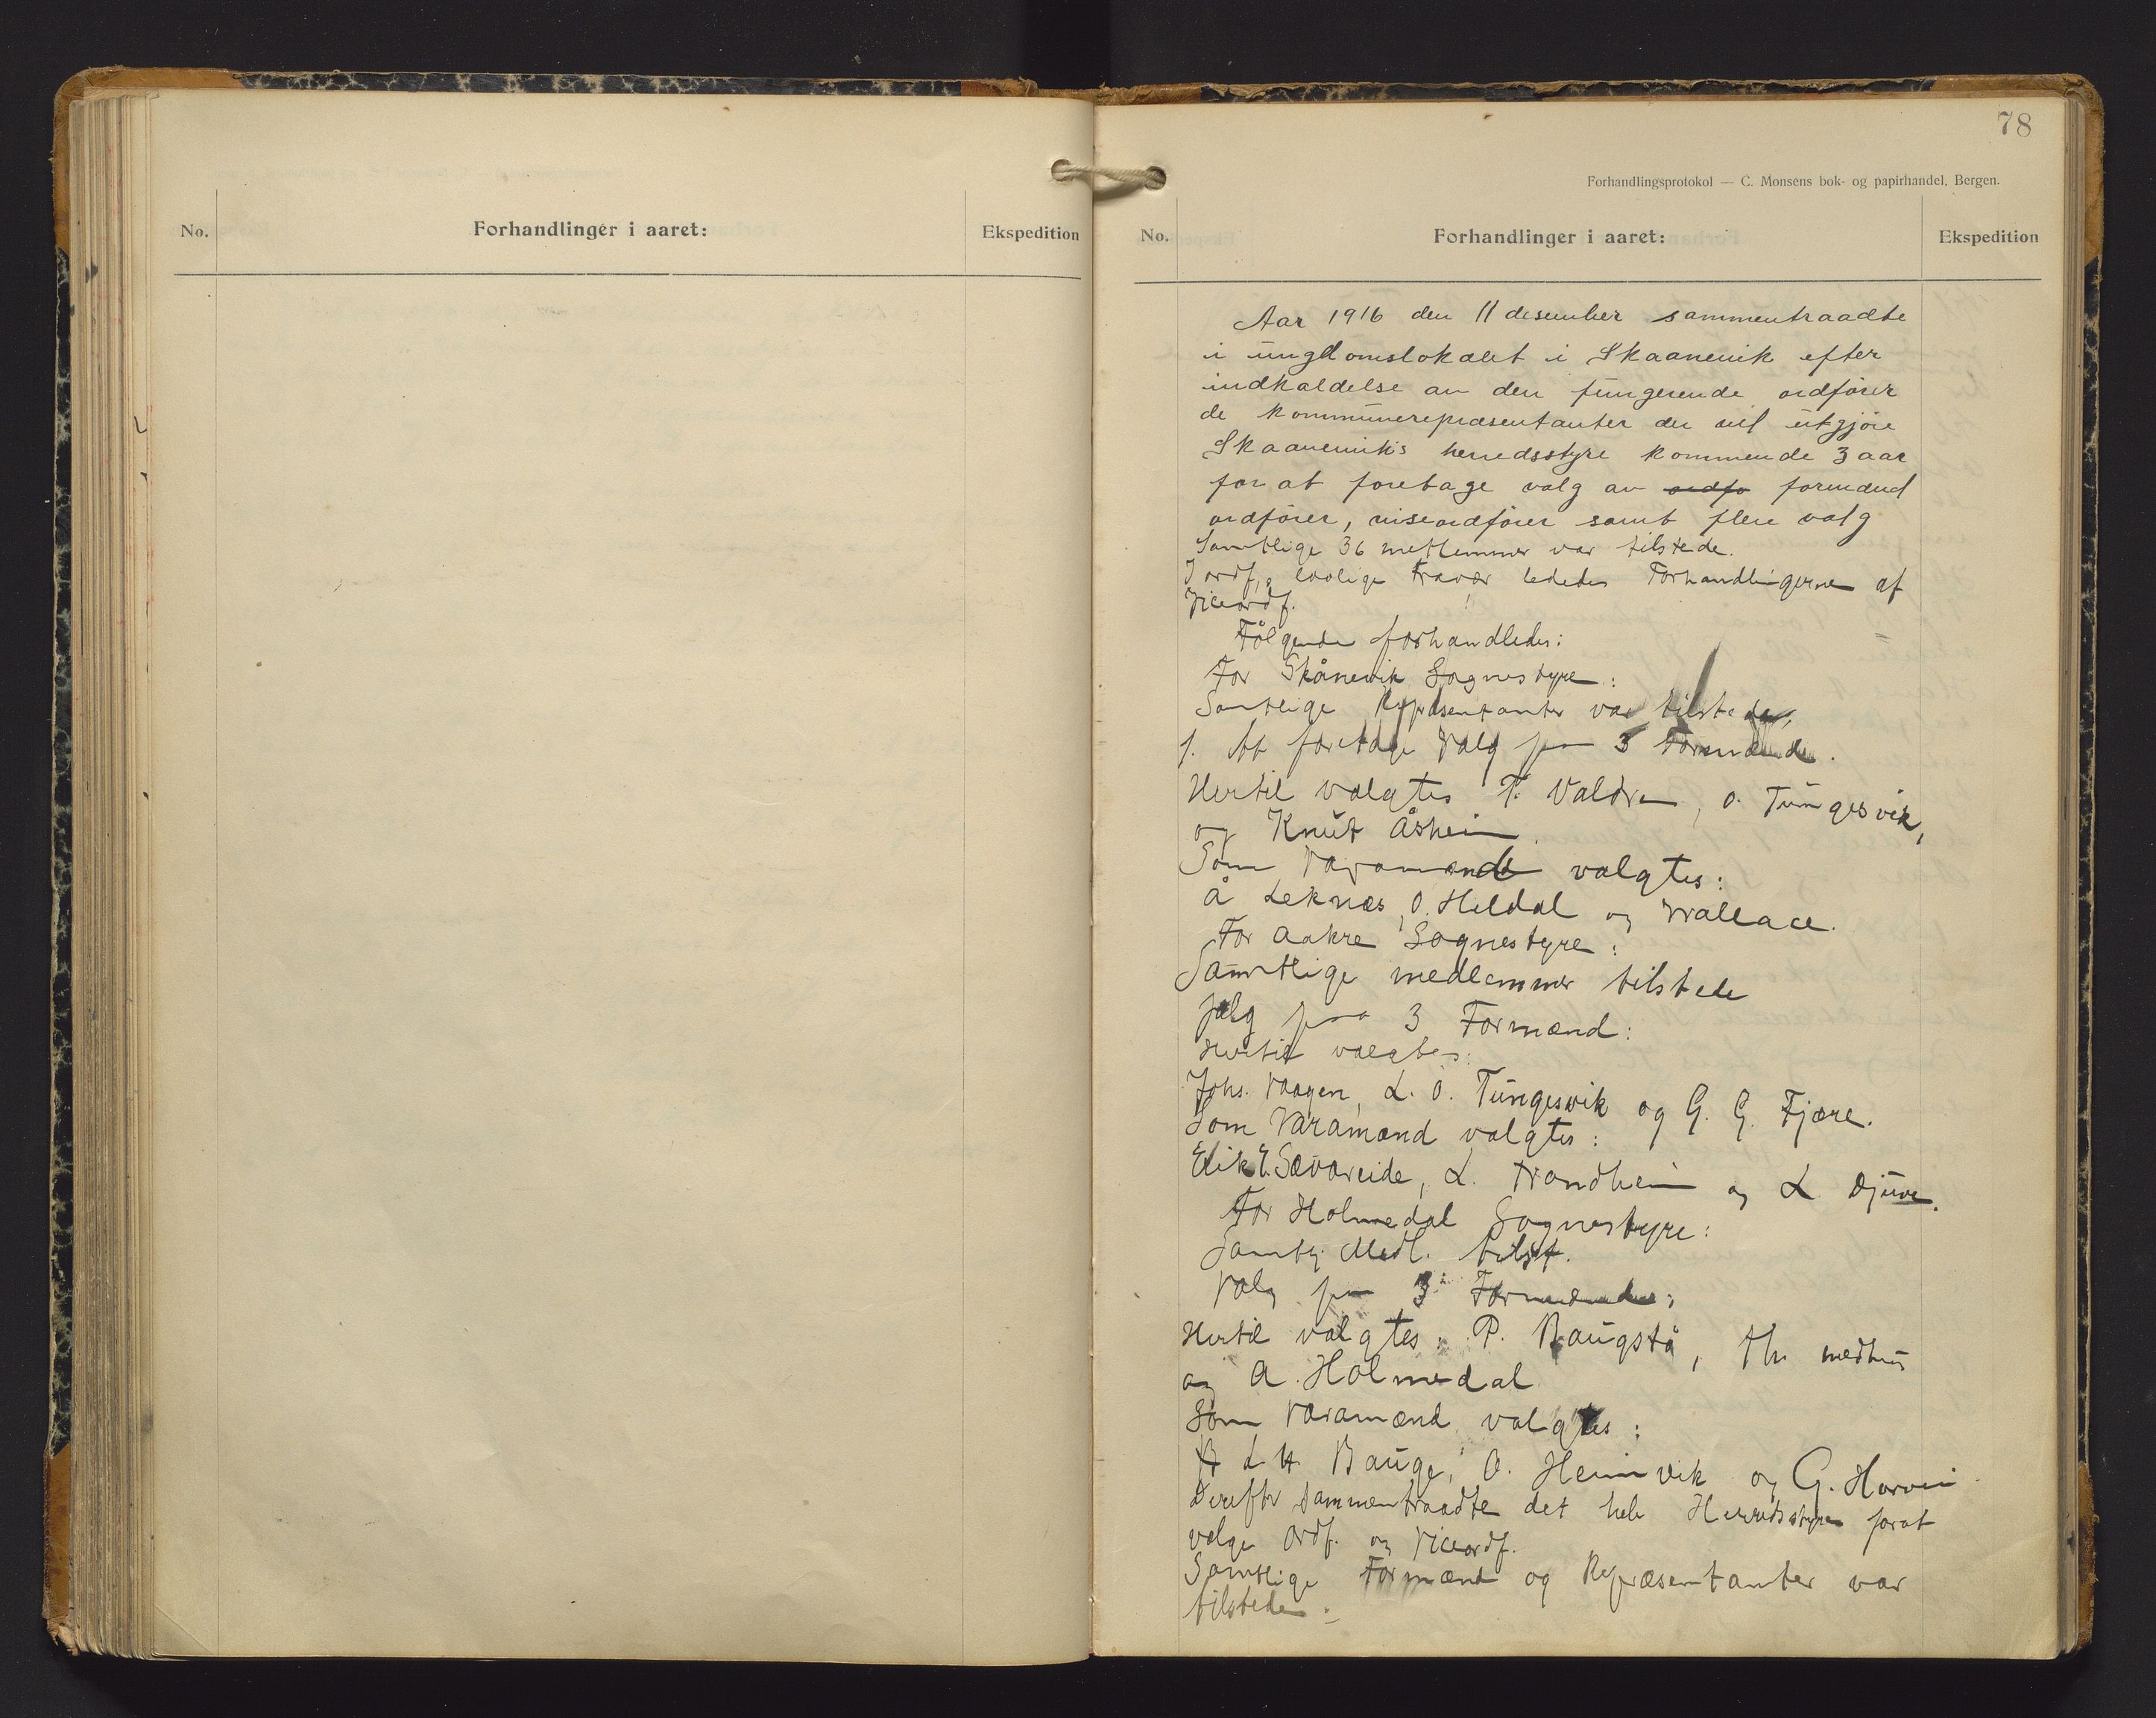 No.
Forhandlinger i aaret:
Ekspedition
78
Forhandlingsprotokol — C. Monsens bok- og papirhandel, Bergen.
No.
Forhandlinger i aaret:
Ekspedition
Aar 1916 den 11 desember sammentraadte
i ungdomslokalet i Skaanevik efter
indkaldelse av den fungerende ordfører
de kommunerepræsentanter der vil utgjøre
Skaaneviks herredsstyre kommende 3 aar
for at foretage valg av ordfo formænd
ordfører, viseordfører samt flere valg
Samtlige 36 metlemmer var tilstede.
I ordf,s lovlige Fravær lededes Forhandlingerne af
Viceordf.
Følgende forhandledes:
For Skånevik Sognestyre:
Samtlige Repræsentanter var tilstede,
1. At foretage Valg paa 3 Formænd.
Hertil valgtes T. Valdra, O. Tungesvik,
og Knut Åsheim.
Som Varamænd valgtes:
Å Leknes, O. Heldal og Wallace.
For Aakre Sognestyre:
Samtlige medlemmer tilstede
Valg paa 3 Formænd:
Hertil valgtes:
Johs. Vaagen, L. O. Tungesvik og G. G. Fjære.
Som Varamænd valgtes:
Erik E. Sævareide, L. Trondheim og L Djuve.
For Holmedal Sognestyre:
Samtl. Medl. tilst.
Valg paa 3 Formænd:
Hertil valgtes: P. Baugstå, Th. medhus
og A. Holmedal
Som Varamænd valgtes:
L. H. Bauge, O. Heimvik og G.
Derefter sammentraadte det hele Herredsstyre forat
vælge Ordf. og Viceordf.
Samtlige Formænd og Repræsentanter var
tilstede: